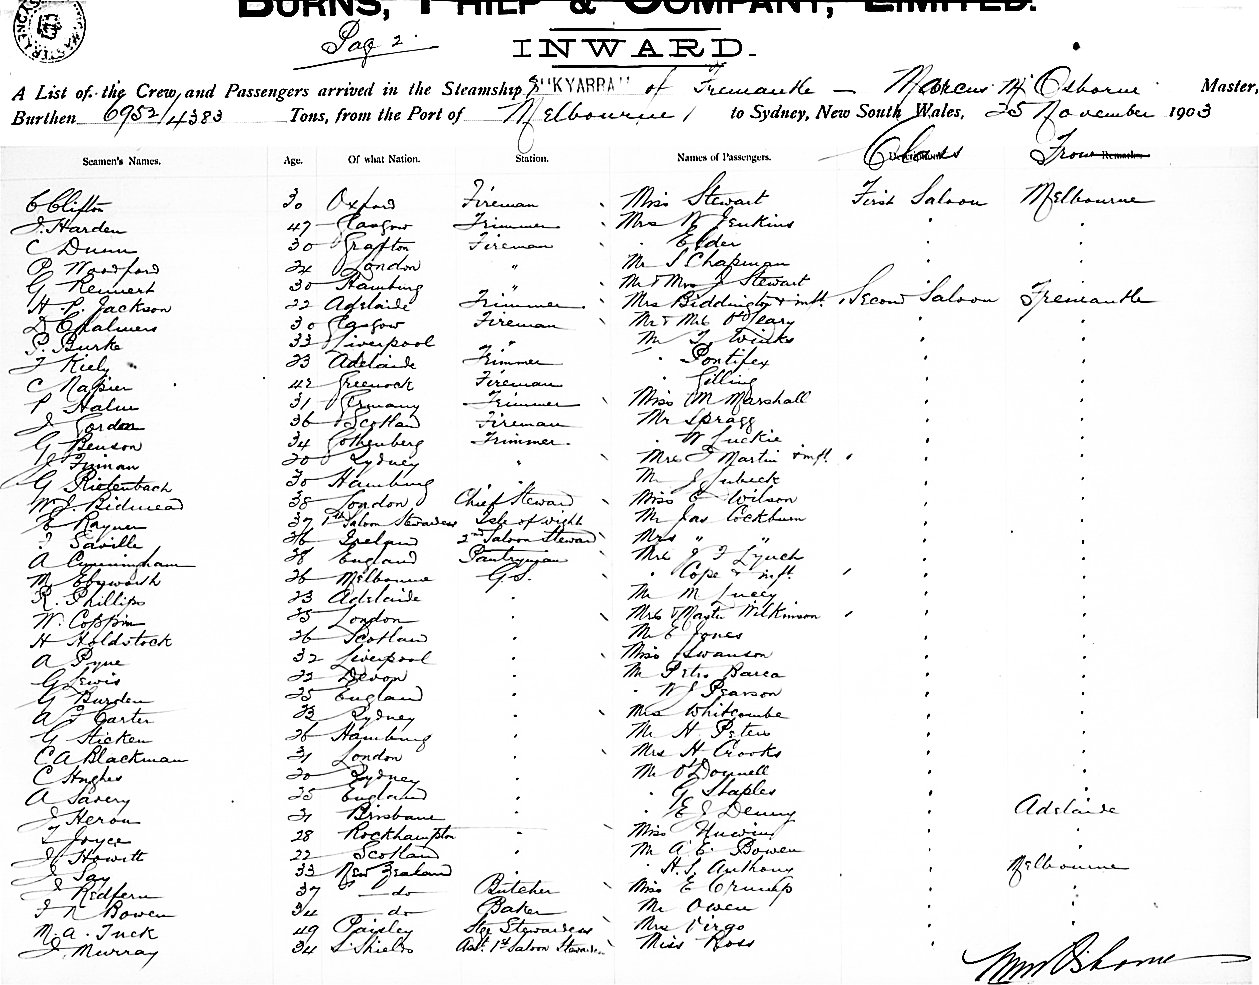 BURNS, PHILP & COMPANY, LIMITED.
Pag 2.
INWARD.
A List of the Crew and Passengers arrived in the Steamship S "KYARRA" of Fremantle — Marcus M Osborne Master,
Burthen 6952/4383 Tons, from the Port of Melbourne to Sydney, New South Wales, 25 November 1903
Seamen's Names. Age. Of what Nation. Station. Names of Passengers. Class From Remarks
C Clifton 30 Oxford Fireman Miss Stewart First Saloon Melbourne
J. Harden 47 Glasgow Trimmer Mrs W Jenkins
C Dunn 30 Grafton Fireman " Elder
P. Woodford 24 London " Mr S Chapman
G Rennert 30 Hamburg " Mr & Mrs J Stewart
H. P. Jackson 22 Adelaide Trimmer Mrs Biddington & inft. Second Saloon Fremantle
D Chalmers 30 Glasgow Fireman Mr & Mrs O'Leary
P. Burke 33 Liverpool " Mr T. Winks
J Kiely 23 Adelaide Trimmer " Pontifex
C Napier 42 Greenock Fireman Gilling
P Halm 31 Germany Trimmer Miss M Marshall
J Gordon 36 Scotland Fireman Mr Spragg
G Benson 34 Gothenberg Trimmer. " W Luckie
Finnan 20 Sydney " Mrs F Martin & inft.
G Rietenbach 30 Hamburg Mr J Lubeck
W. J. Bidmead 38 London Chief Steward Miss E Wilson
E Rayner 37 1st Saloon Stewardess Isle of Wight Mr Jas Cockburn
Saville 36 Ireland 2nd Saloon Steward Mrs " "
A Cunningham 38 England Pantryman Mrs J F Lynch
M Ebsworth 26 Melbourne G.S. " Cope & inft.
R. Phillips 23 Adelaide Mr M Lucey
W. Coppin 25 London Mrs & Master Wilkinson
H Holdstock 26 Scotland Mr E Jones
A Pyne 32 Liverpool Miss Swanson
G Lewis 22 Devon Mr Petro Barca
G Burden 25 England " W J Pearson
A F Carter 33 Sydney Mrs Whitcombe
G Sticken 26 Hamburg Mr H Peters
C A Blackman 31 London Mrs H Crooks
C Hughes 20 Sydney Mr O'Donnell
A Savery 25 England " G Staples
J Heron 21 Brisbane " E J Denny Adelaide
T Joyce 28 Rockhampton Miss Unwin
J Howitt 22 Scotland Mr A E Bowen
J Say 33 New Zealand " H. S. Anthony Melbourne
J Redfern 37 do Butcher Miss E Crump
J N Bowen 34 do Baker Mr Owen
M. A. Tuck 49 Paisley Stge Stewardess Mrs Virgo
J. Murray 34 S. Shields Asst. 1st Saloon Steward Miss Ross